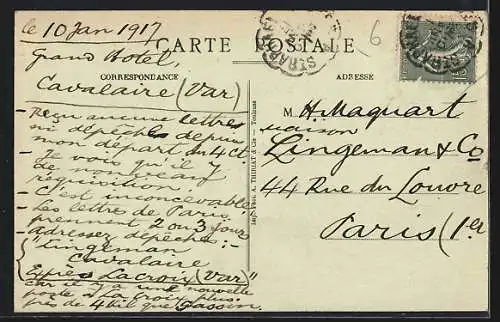 le 10 Jan 1917
Grand Hotel,
Cavalaire (Var)
CARTE POSTALE
CORRESPONDANCE
ADRESSE
- Reçu aucune lettres
ni dépêches depuis
mon départ du 4 ct.
- Je vois qu'il y
de nouveau
réquisition.
- C'est inconcevable!
- Les lettres de Paris
prennent 2 ou 3 jours
- adressez dépêches:-
"Lingeman
Cavalaire
Lacroix (Var)"
car il y a une nouvelle
poste à La Croix, plus
près de 4 kil que Gassin.
Imp. Phot. A. & Cie - Toulouse
M. H. Maquart
maison
Lingeman & Co
44 Rue du Louvre
Paris (1er
6